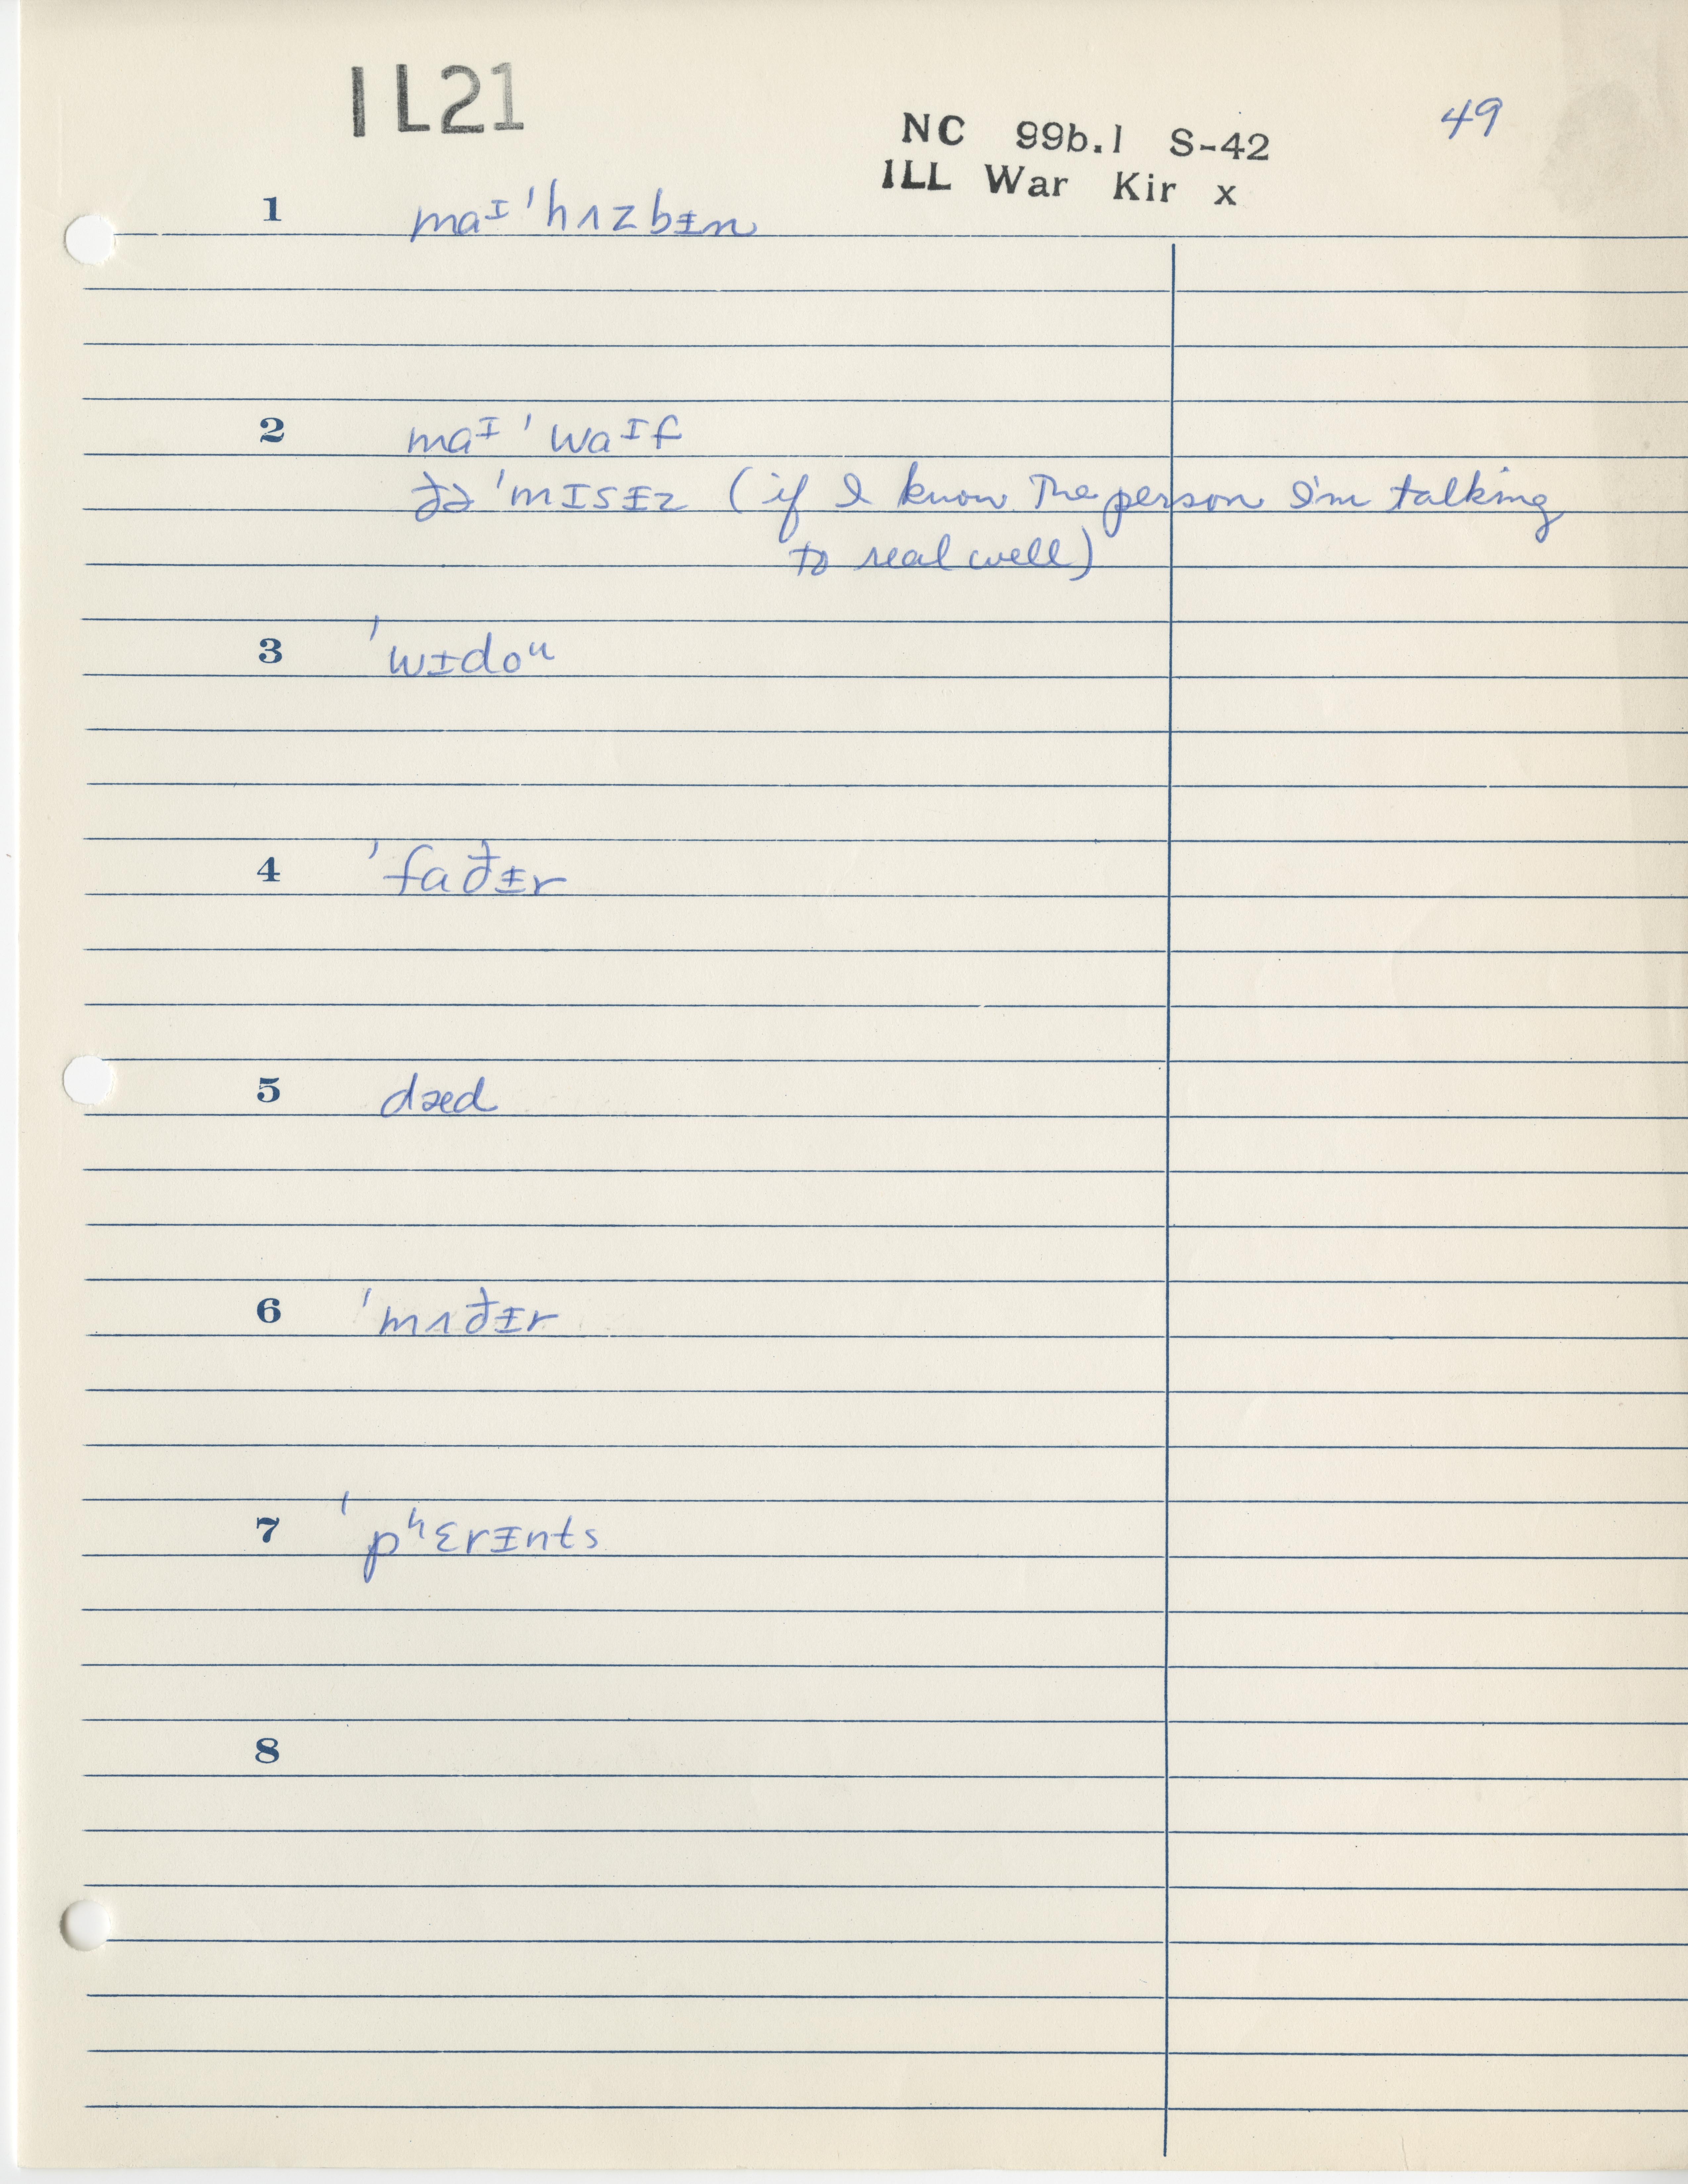 IL21
NC 99b.1 S-42
49
ILL War Kir x
1 maᶦ 'hʌzbᵻn
2 maᶦ 'waᶦf
ðə 'mɪsᵻz (if I know the person I'm talking
to real well)
3 'wᵻdoᵘ
4 'faðᵻr
5 dæd
6 'mʌðᵻr
7 'pʰɛrᵻnts
8